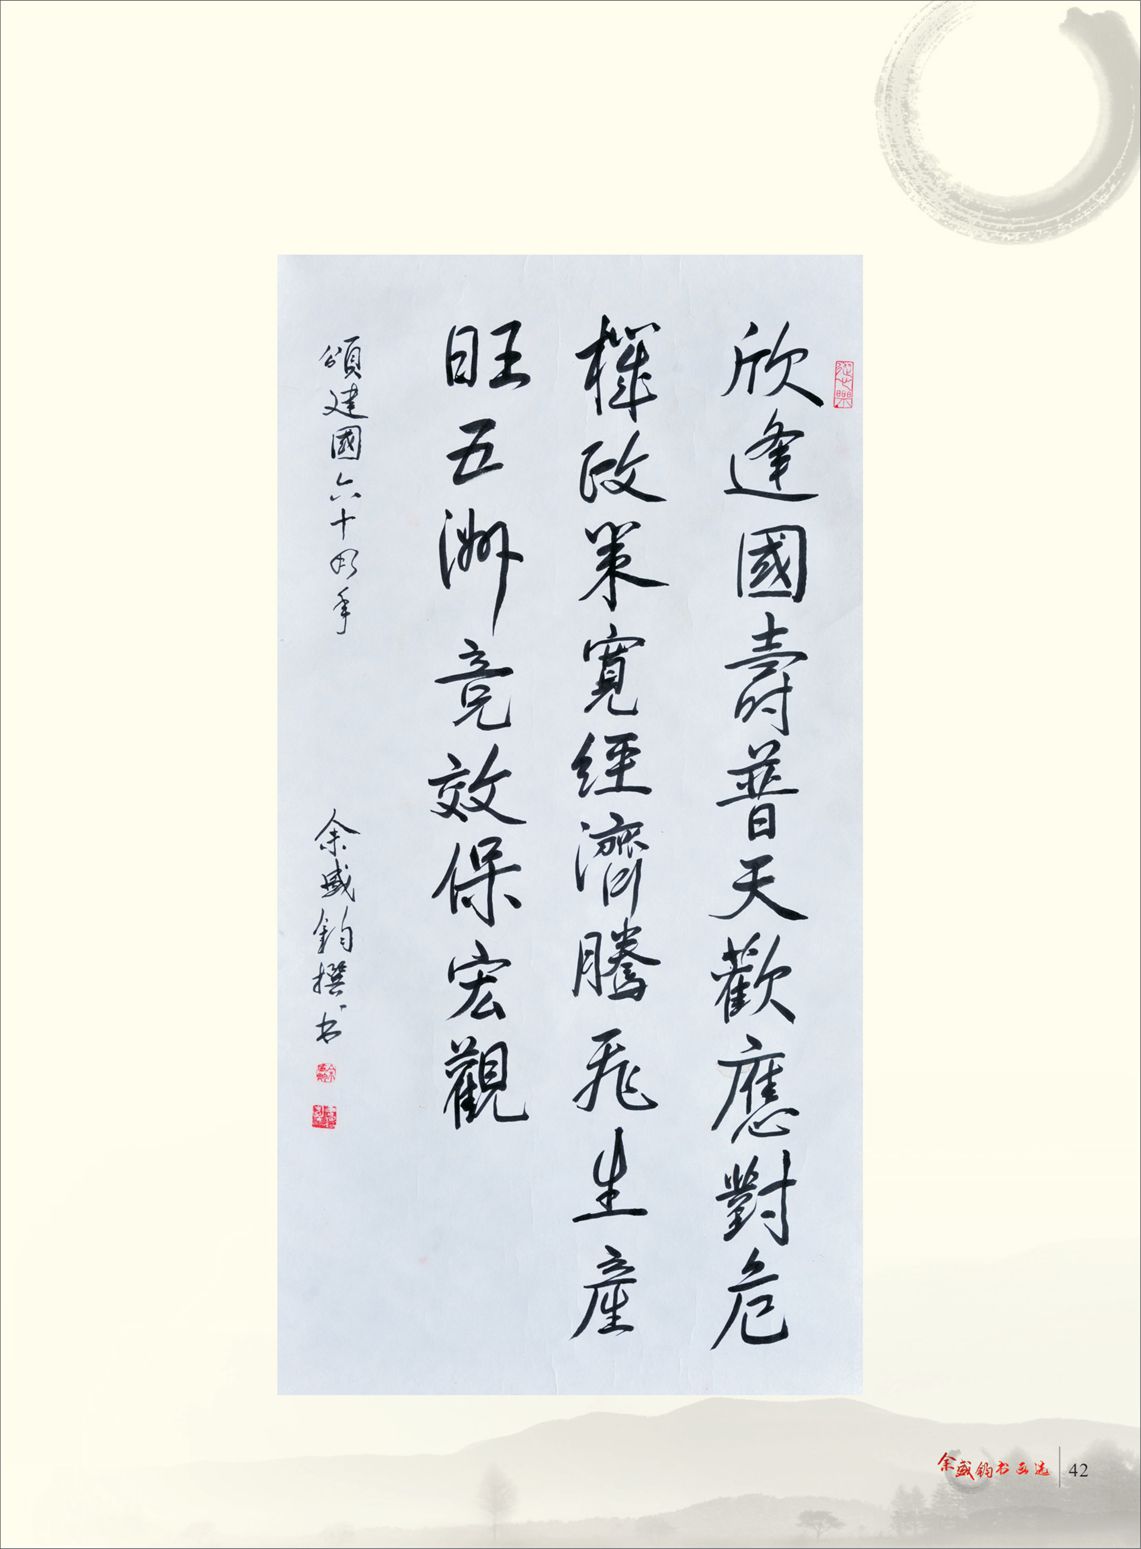 欣逢國壽普天歡應對危
機政策寬經濟騰飛生產
旺五洲竞效保宏觀
頌建國六十周年
余盛鈞撰书
余盛钧书画选
42